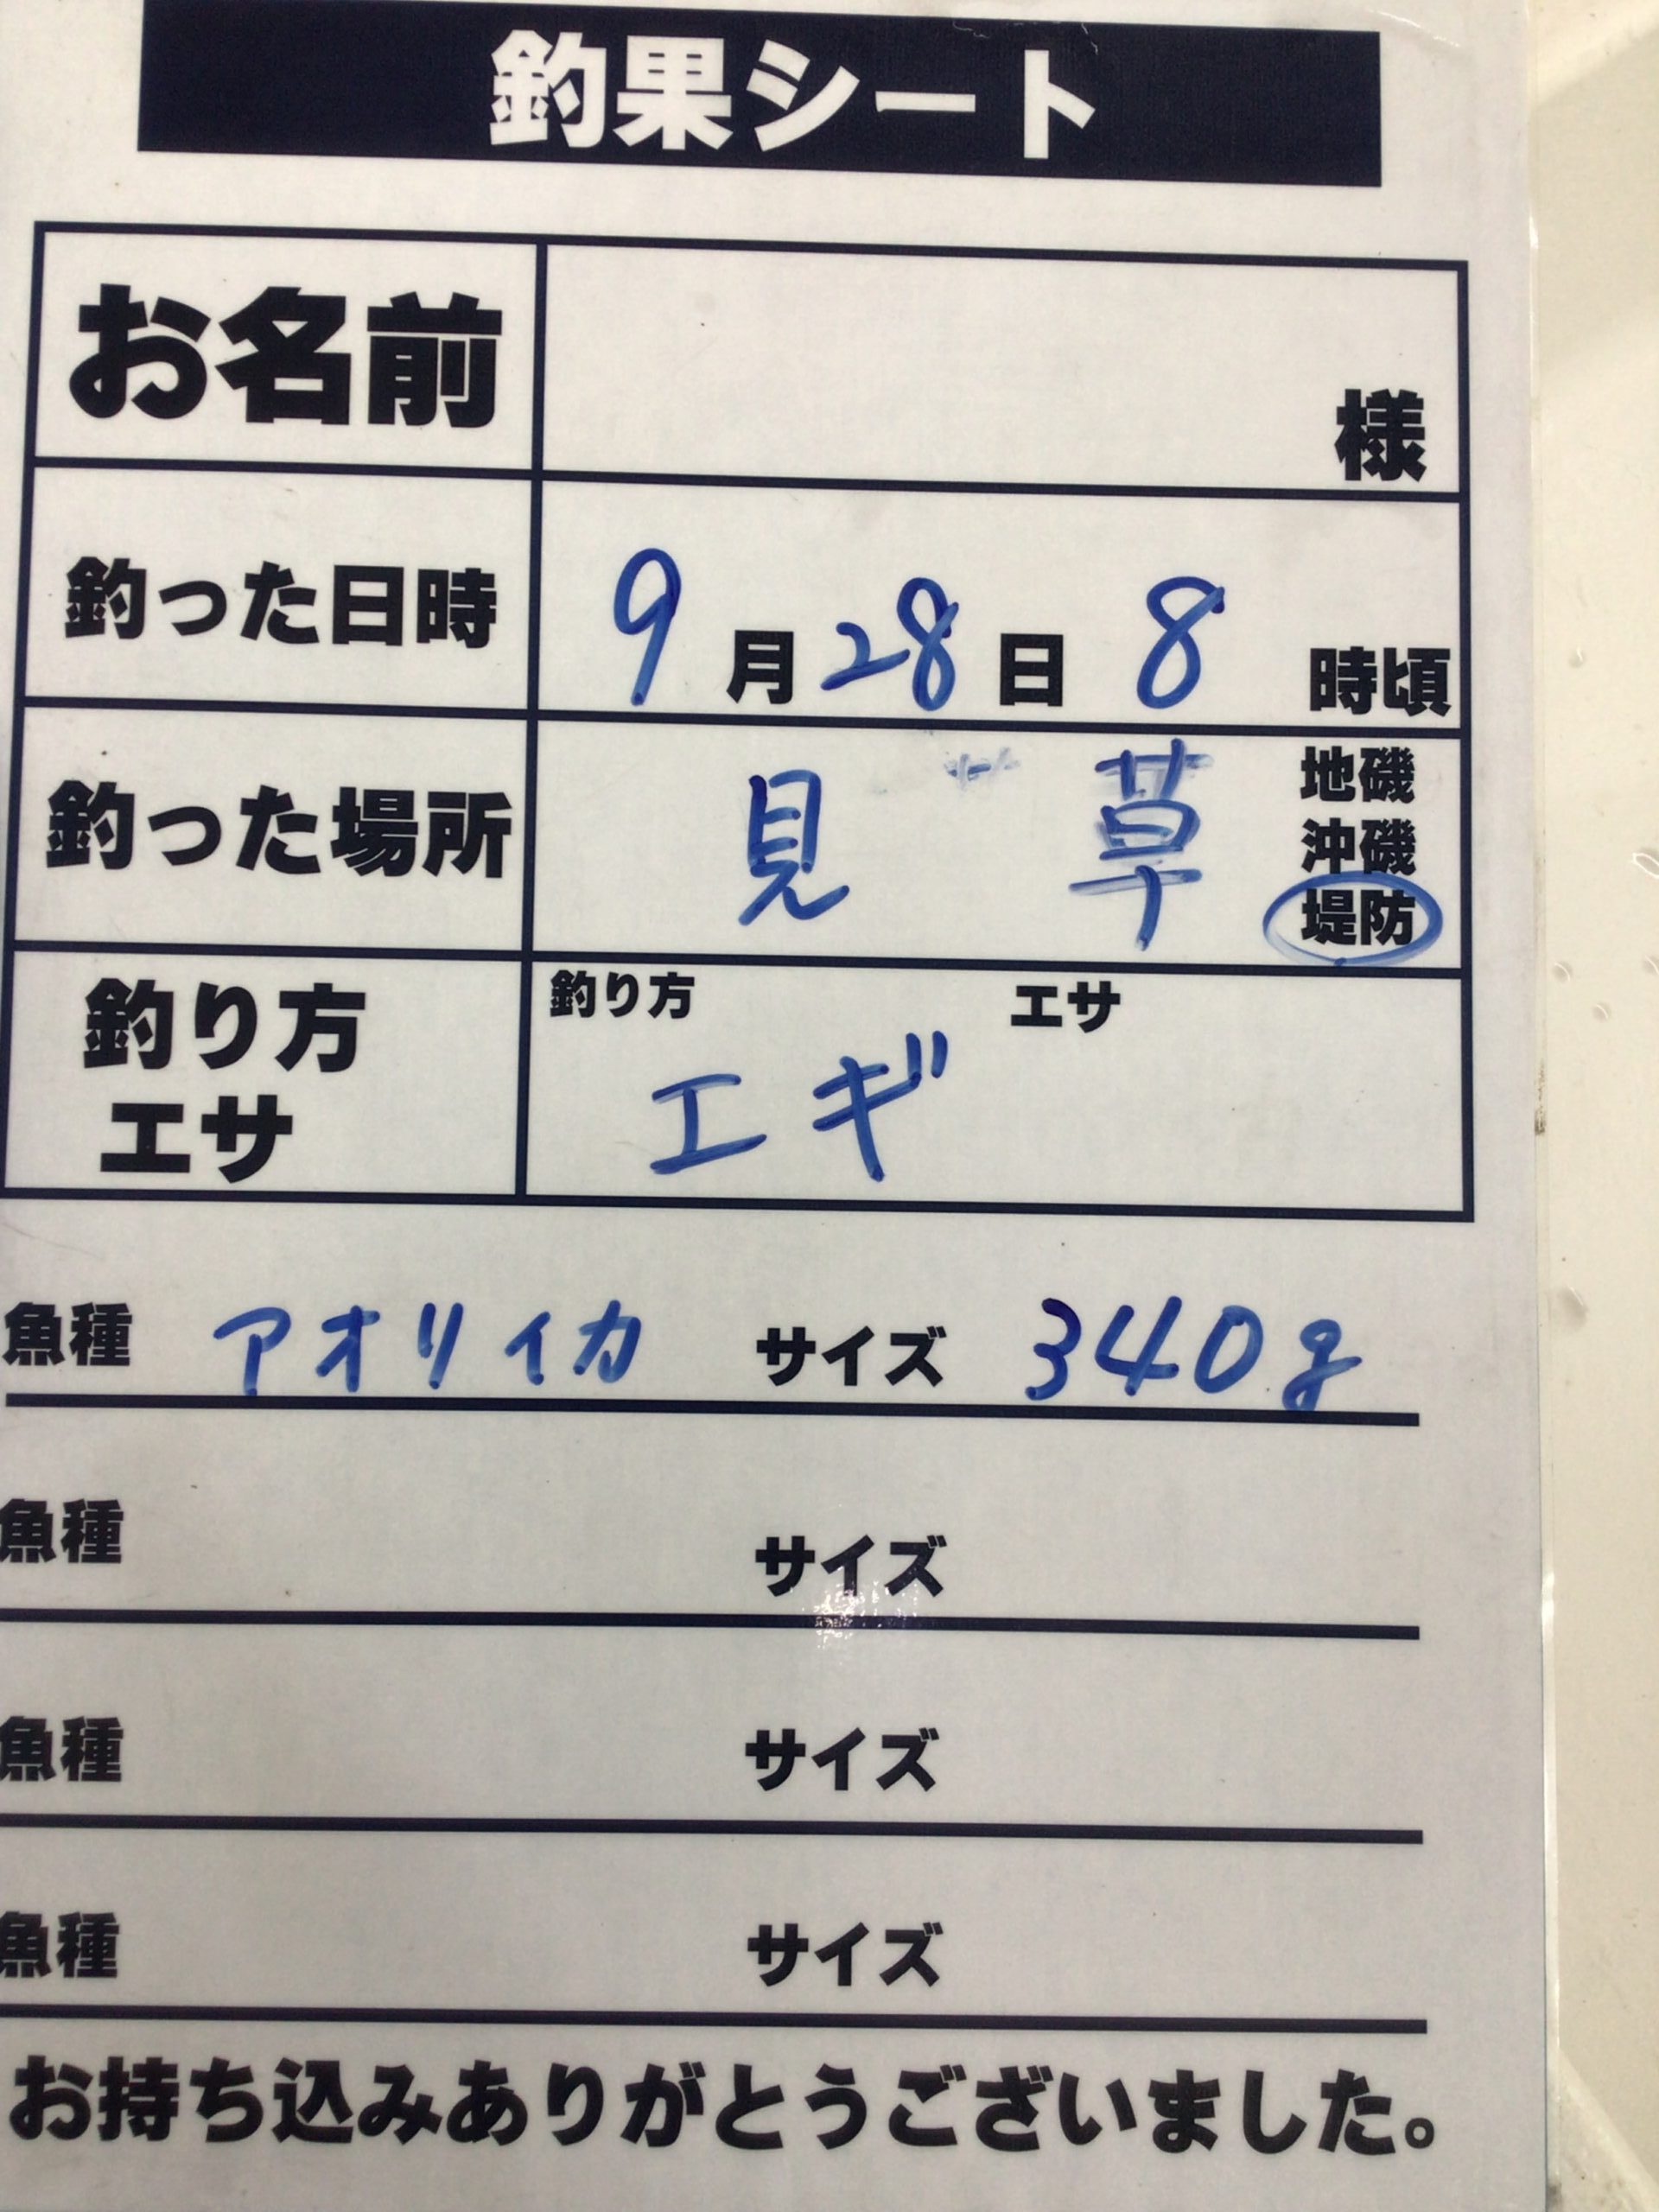 釣果シート
お名前 様
釣った日時 9月28日 8時頃
釣った場所 見 草 地磯
沖磯
堤防
釣り方 エサ
釣り方 エギ
エサ
魚種 アオリイカ サイズ 340g
魚種 サイズ
魚種 サイズ
魚種 サイズ
お持ち込みありがとうございました。